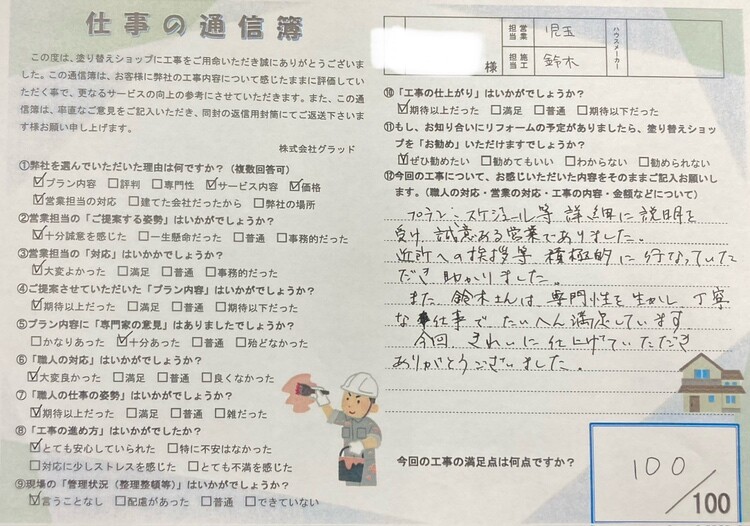 仕事の通信簿
この度は、塗り替えショップに工事をご用命いただき誠にありがとうございま
した。この通信簿は、お客様に弊社の工事内容について感じたままに評価してい
ただく事で、更なるサービスの向上の参考にさせていただきます。また、この通
信簿は、率直なご意見をご記入いただき、同封の返信用封筒にてご返送下さいま
す様お願い申し上げます。
株式会社グラッド
①弊社を選んでいただいた理由は何ですか？（複数回答可）
☑プラン内容 □評判 □専門性 ☑サービス内容 ☑価格
☑営業担当の対応 □建てた会社だったから □弊社の場所
②営業担当の「ご提案する姿勢」はいかがでしょうか？
☑十分誠意を感じた □一生懸命だった □普通 □事務的だった
③営業担当の「対応」はいかかでしょうか？
☑大変よかった □満足 □普通 □事務的だった
④ご提案させていただいた「プラン内容」はいかがでしょうか？
☑期待以上だった □満足 □普通 □期待以下だった
⑤プラン内容に「専門家の意見」はありましたでしょうか？
□かなりあった ☑十分あった □普通 □殆どなかった
⑥「職人の対応」はいかがでしょうか？
☑大変良かった □満足 □普通 □良くなかった
⑦「職人の仕事の姿勢」はいかがでしょうか？
☑期待以上だった □満足 □普通 □雑だった
⑧「工事の進め方」はいかがでしたか？
☑とても安心していられた □特に不安はなかった
□対応に少しストレスを感じた □とても不満を感じた
⑨現場の「管理状況（整理整頓等）」はいかがでしょうか？
☑言うことなし □配慮があった □普通 □できていない
様
担当 営業 児玉
担当 施工 鈴木
ハウスメーカー
⑩「工事の仕上がり」はいかがでしょうか？
☑期待以上だった □満足 □普通 □期待以下だった
⑪もし、お知り合いにリフォームの予定がありましたら、塗り替えショッ
プを「お勧め」いただけますでしょうか？
☑ぜひ勧めたい □勧めてもいい □わからない □勧められない
⑫今回の工事について、お感じいただいた内容をそのままご記入お願いし
ます。（職人の対応・営業の対応・工事の内容・金額などについて）
プラン・スケジュール等 詳細に説明を
受け 誠意ある営業でありました。
近所への挨拶等 積極的に行なっていた
だき助かりました。
また 鈴木さんは 専門性を生かし 丁寧
な仕事で たいへん満足しています
今回 きれいに仕上げていただき
ありがとうございました。
今回の工事の満足点は何点ですか？
100/100